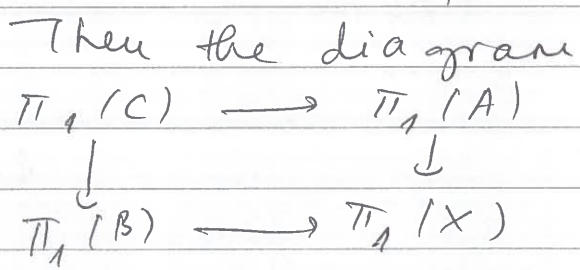 Then the diagram
π₁(C) ⟶ π₁(A)
↓ ↓
π₁(B) ⟶ π₁(X)